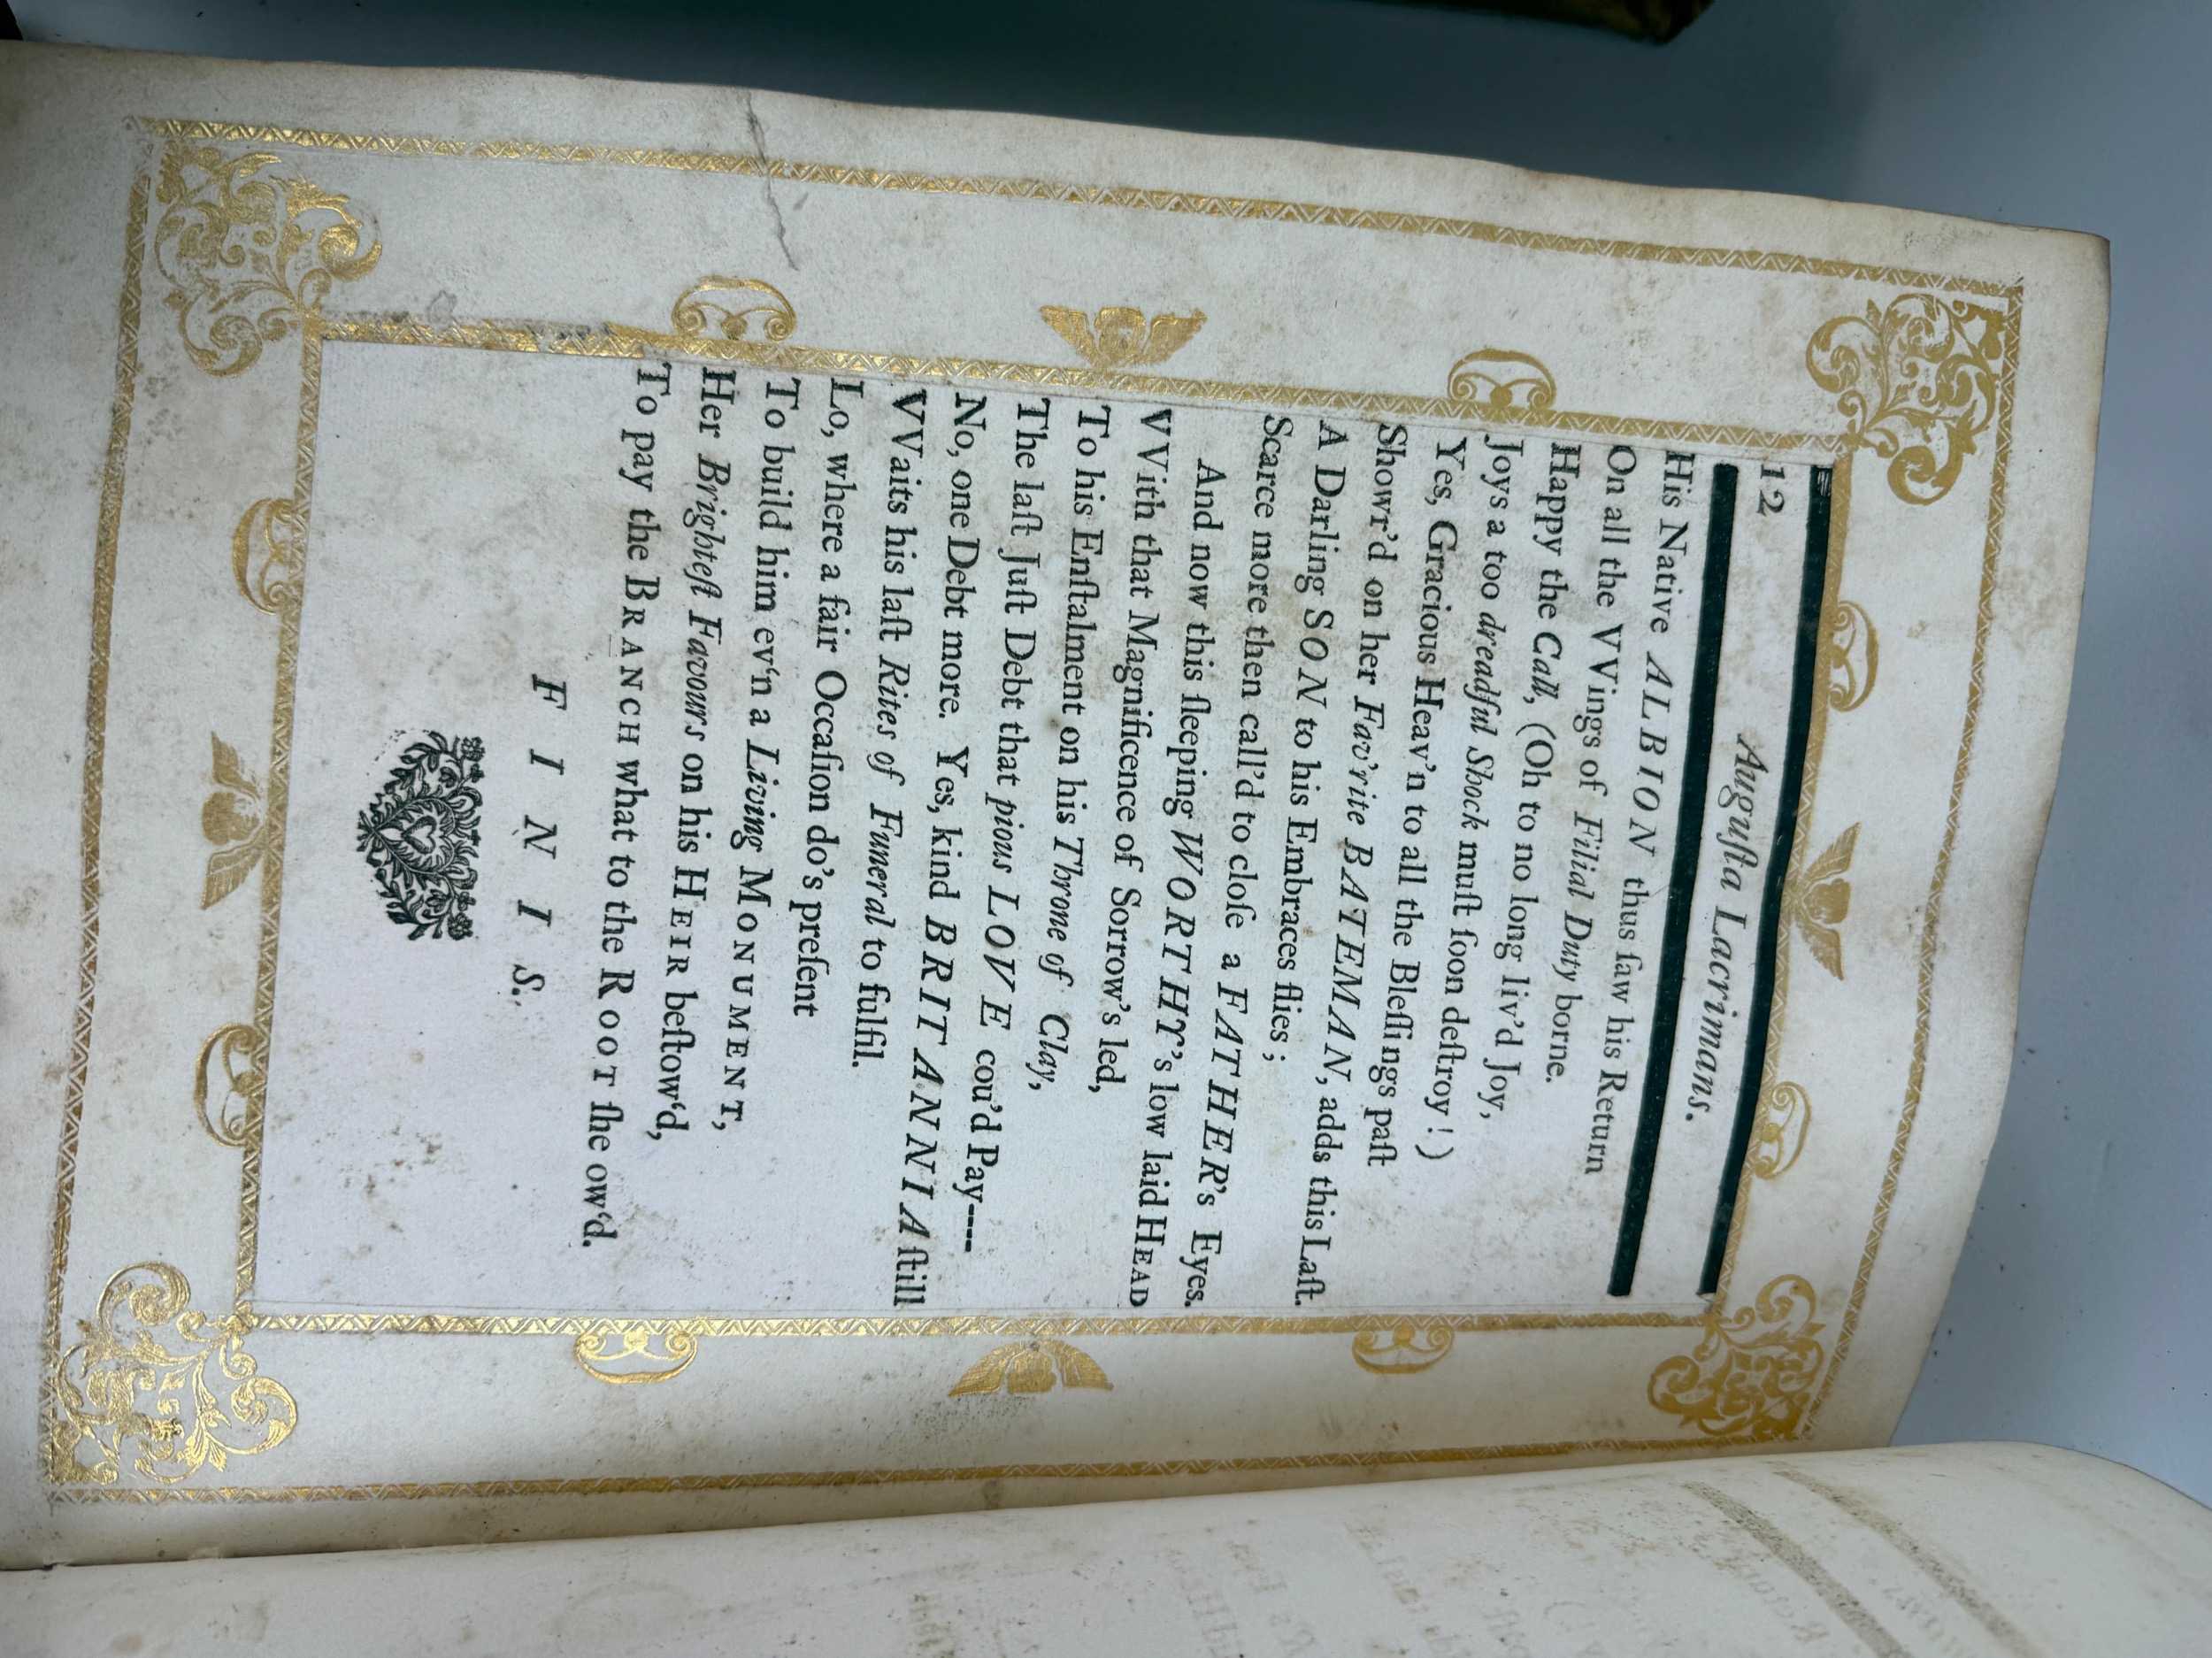 12 Auguſta Lacrimans.
His Native ALBION thus ſaw his Return
On all the VVings of Filial Duty borne.
Happy the Call, (Oh to no long liv'd Joy,
Joys a too dreadful Shock muſt ſoon deſtroy!)
Yes, Gracious Heav'n to all the Bleſſings paſt
Showr'd on her Fav'rite BATEMAN, adds this Laſt.
A Darling SON to his Embraces flies;
Scarce more then call'd to cloſe a FATHER's Eyes.
And now this ſleeping WORTHY's low laid HEAD
VVith that Magnificence of Sorrow's led,
To his Enſtalment on his Throne of Clay,
The laſt Juſt Debt that pious LOVE cou'd Pay----
No, one Debt more. Yes, kind BRITANNIA ſtill
VVaits his laſt Rites of Funeral to fulfil.
Lo, where a fair Occaſion do's preſent
To build him ev‘n a Living MONUMENT,
Her Brighteſt Favours on his HEIR beſtow‘d,
To pay the BRANCH what to the ROOT ſhe ow‘d.
FINIS.